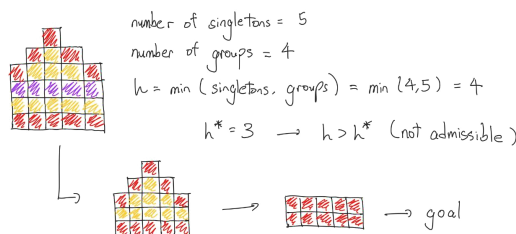 number of singletons = 5
number of groups = 4
h = min (singletons, groups) = min (4,5) = 4
h* = 3 → h > h* (not admissible)
→ goal